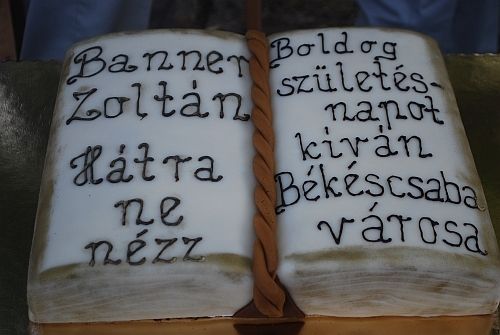 Banner
Zoltán
Hátra
ne
nézz
Boldog
születés-
napot
kiván
Békéscsaba
városa